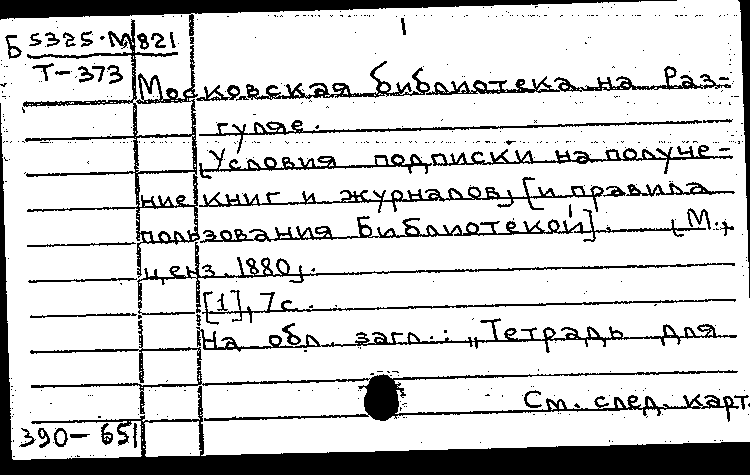 1
Б 5325·М821
Т-373
Московская библиотека на Раз-
гуляе.
[Условия подписки на получе-
ние книг и журналов] [и правила
пользования библиотекой]. [М.,
ценз. 1880].
[1], 7с.
На обл. загл.: „Тетрадь для
См. след. карт.
390-651